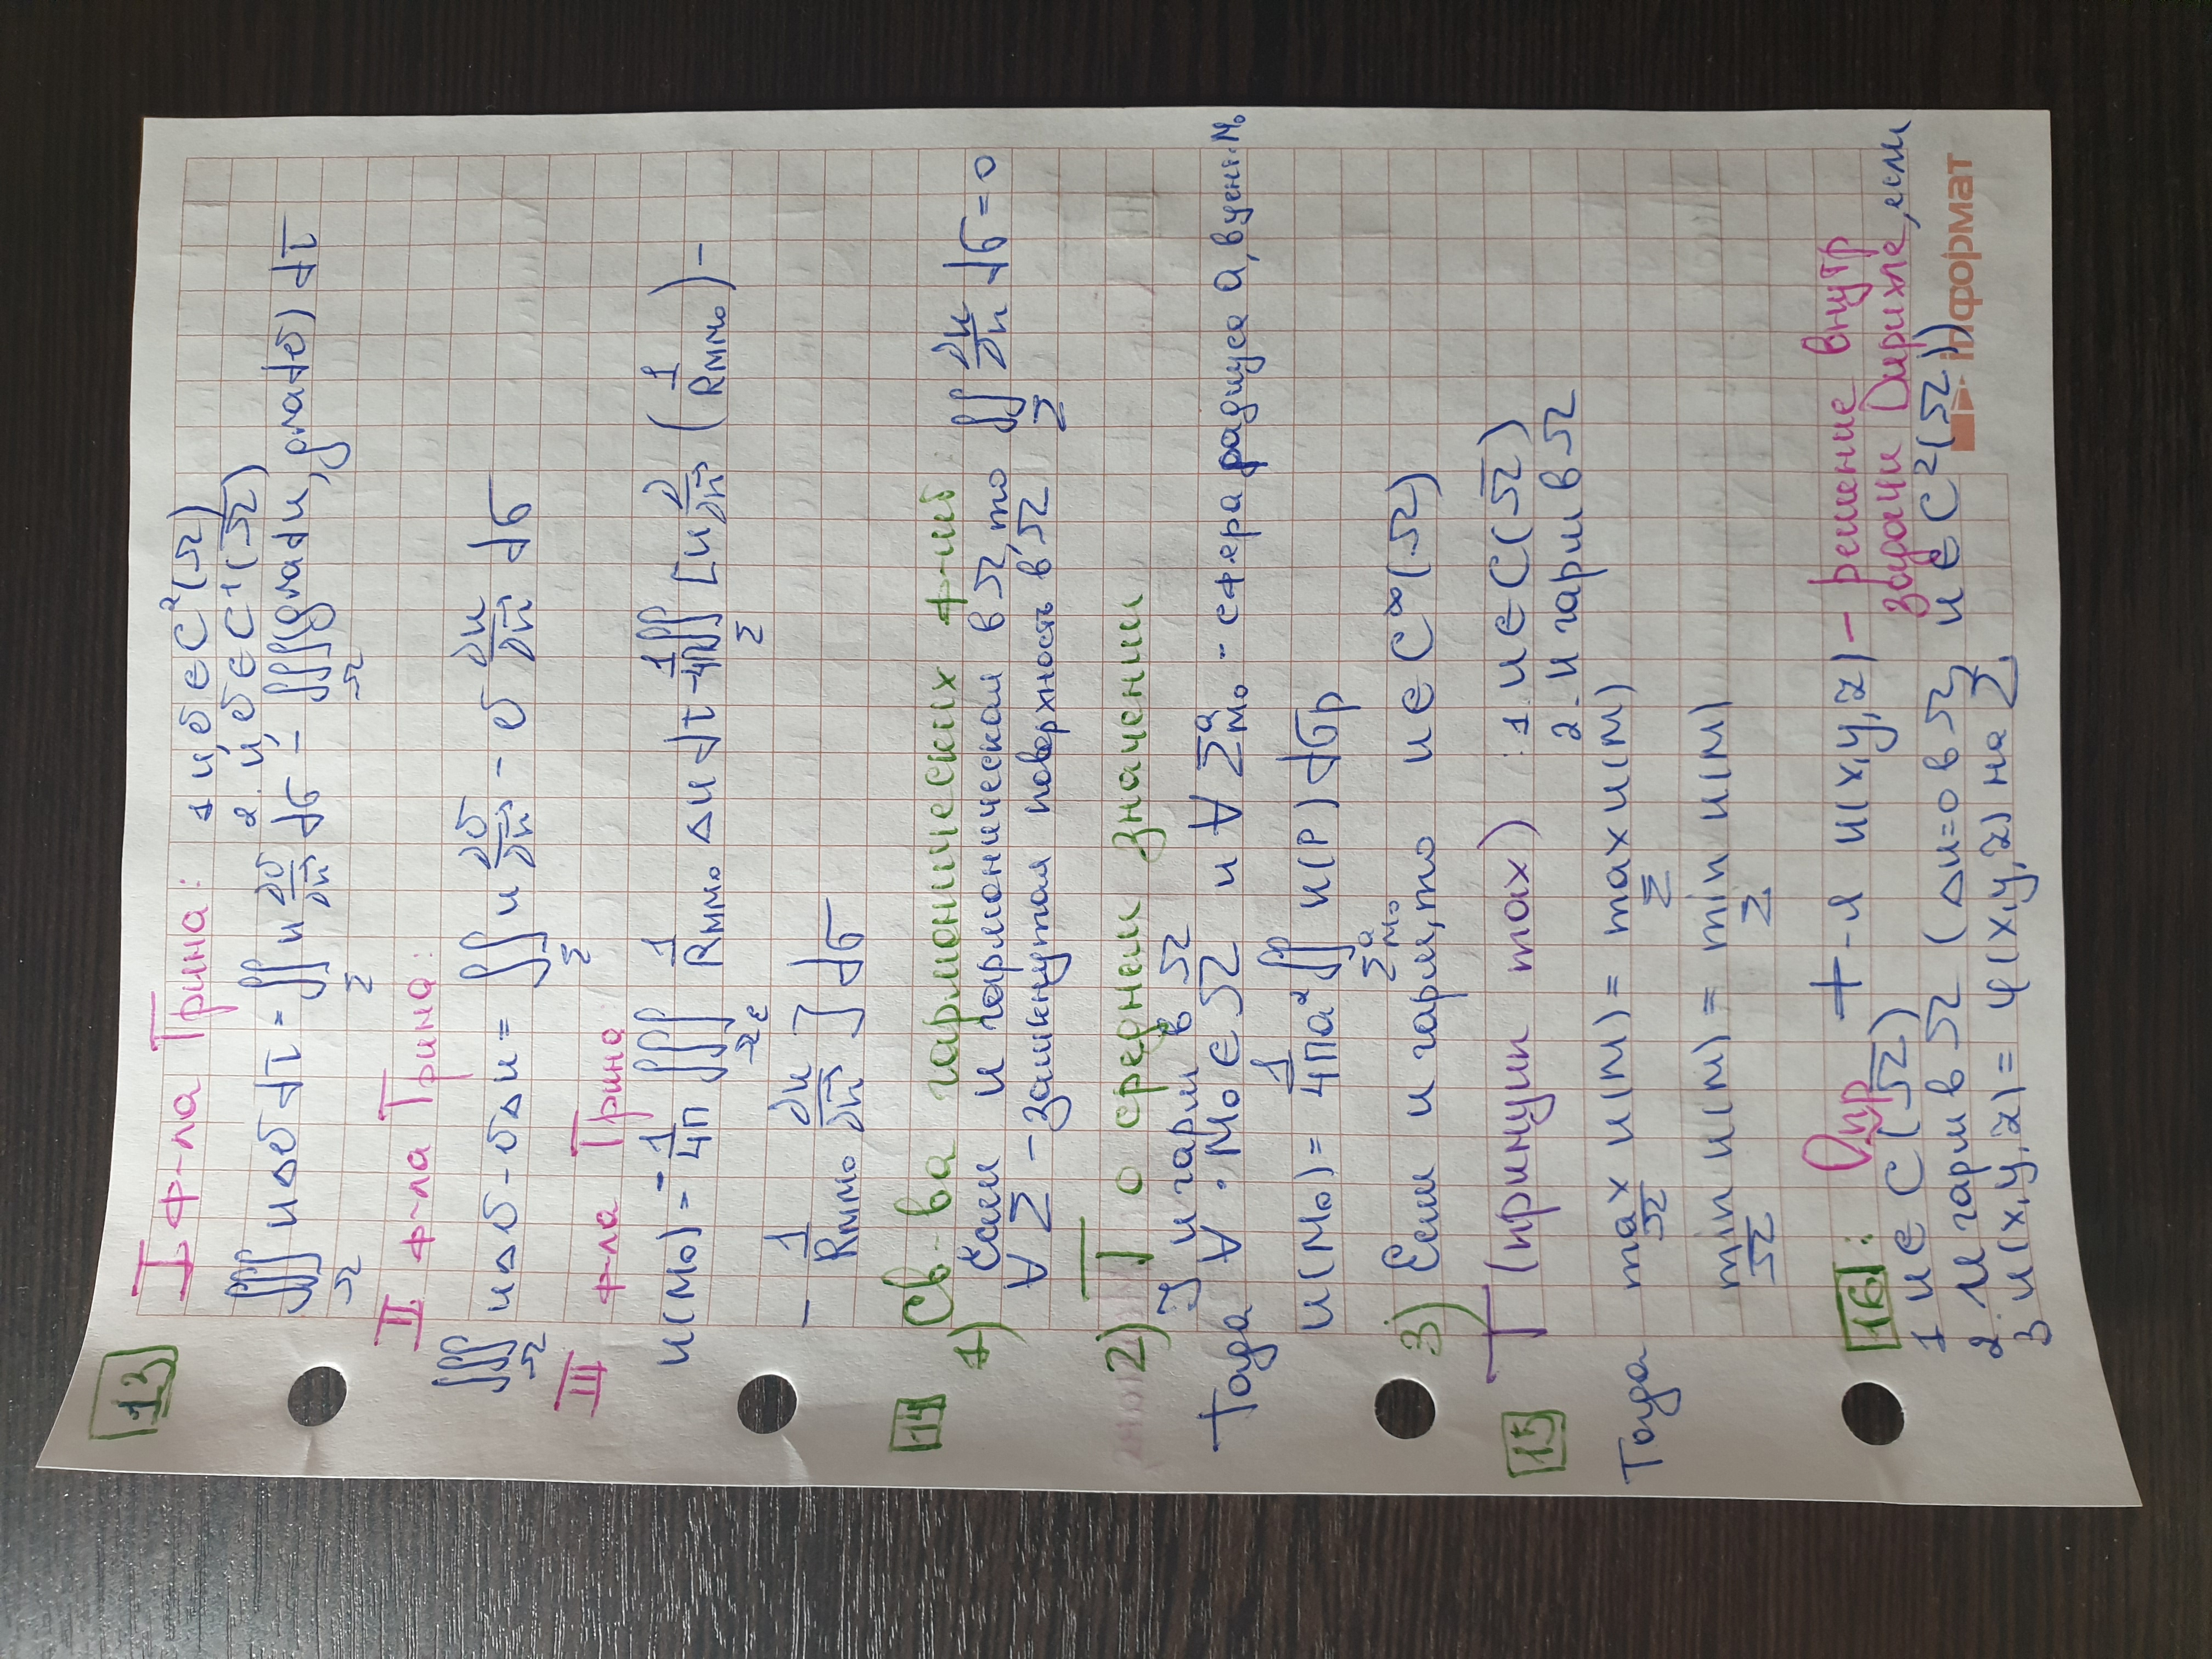 13
I ф-ла Грина: 1 u, v ∈ C²(Ω)
2. u, v ∈ C¹(Ω̅)
∭_Ω u Δv dτ = ∬_Σ u ∂v/∂n⃗ dσ − ∭_Ω (grad u, grad v) dτ
II ф-ла Грина:
∭_Ω uΔv - vΔu = ∬_Σ u ∂v/∂n⃗ - v ∂u/∂n⃗ dσ
III ф-ла Грина
u(M₀) = -1/4π ∭_Ωε 1/R_MM₀ Δu dτ - 1/4π ∬_Σ [u ∂/∂n⃗ (1/R_MM₀) -
- 1/R_MM₀ ∂u/∂n⃗ ] dσ
14 Св-ва гармонических ф-ий
1) Если u гармоническая в Ω, то ∬_Σ ∂u/∂n dσ = 0
∀ Σ - замкнутая поверхность в Ω
2) Т о среднем значении
] u гарм в Ω
Тогда ∀ . M₀ ∈ Ω и ∀ Σ^a_M₀ - сфера радиуса a, в центр. M₀
u(M₀) = 1/4πa² ∬_Σ^a_M₀ u(P) dσ_P
3) Если u гарм, то u ∈ C^∞(Ω)
15 Т (принцип max) : 1. u ∈ C(Ω̅)
2. u гарм в Ω
Тогда max_Ω̅ u(M) = max_Σ u(M)
min_Ω̅ u(M) = min_Σ u(M)
16: Опр ф-я u(x,y,z) - решение внутр
задачи Дирихле, если
1 u ∈ C(Ω̅)
2. u гарм в Ω (Δu=0 в Ω, u ∈ C²(Ω))
3 u(x,y,z) = φ(x,y,z) на Σ
информат